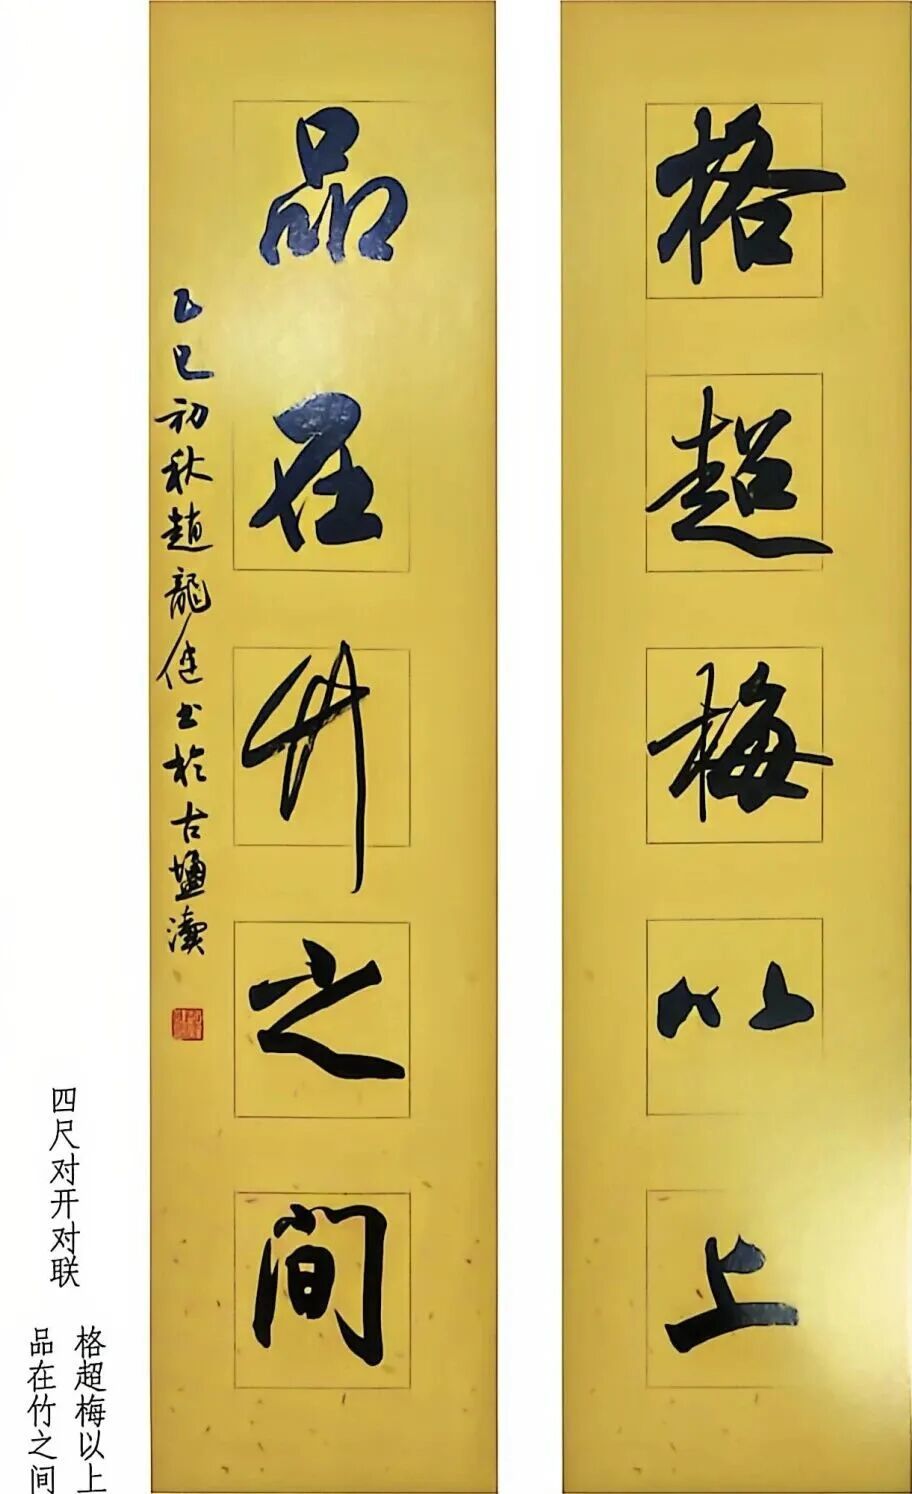 格超梅以上
品在竹之间
乙巳初秋赵龙健书於古盐渎
四尺对开对联
格超梅以上
品在竹之间